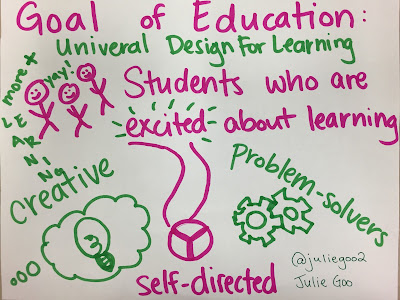 Goal of Education:
Univeral Design For Learning
more +
yay!
LEARNING
Students who are
excited about learning
Creative
Problem-solvers
self-directed
@juliegoo2
Julie Goo